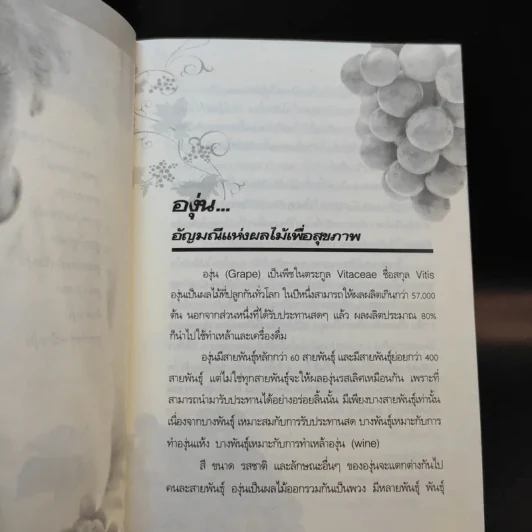 องุ่น...
อัญมณีแห่งผลไม้เพื่อสุขภาพ
องุ่น (Grape) เป็นพืชในตระกูล Vitaceae ชื่อสกุล Vitis
องุ่นเป็นผลไม้ที่ปลูกกันทั่วโลก ในปีหนึ่งสามารถให้ผลผลิตเกินกว่า 57,000
ตัน นอกจากส่วนหนึ่งที่ได้รับประทานสดๆ แล้ว ผลผลิตประมาณ 80%
ก็นำไปใช้ทำเหล้าและเครื่องดื่ม
องุ่นมีสายพันธุ์หลักกว่า 60 สายพันธุ์ และมีสายพันธุ์ย่อยกว่า 400
สายพันธุ์ แต่ไม่ใช่ทุกสายพันธุ์จะให้ผลองุ่นรสเลิศเหมือนกัน เพราะที่
สามารถนำมารับประทานได้อย่างอร่อยลิ้นนั้น มีเพียงบางสายพันธุ์เท่านั้น
เนื่องจากบางพันธุ์ เหมาะสมกับการรับประทานสด บางพันธุ์เหมาะกับการ
ทำองุ่นแห้ง บางพันธุ์เหมาะกับการทำเหล้าองุ่น (wine)
สี ขนาด รสชาติ และลักษณะอื่นๆ ขององุ่นจะแตกต่างกันไป
คนละสายพันธุ์ องุ่นเป็นผลไม้ออกรวมกันเป็นพวง มีหลายพันธุ์ พันธุ์